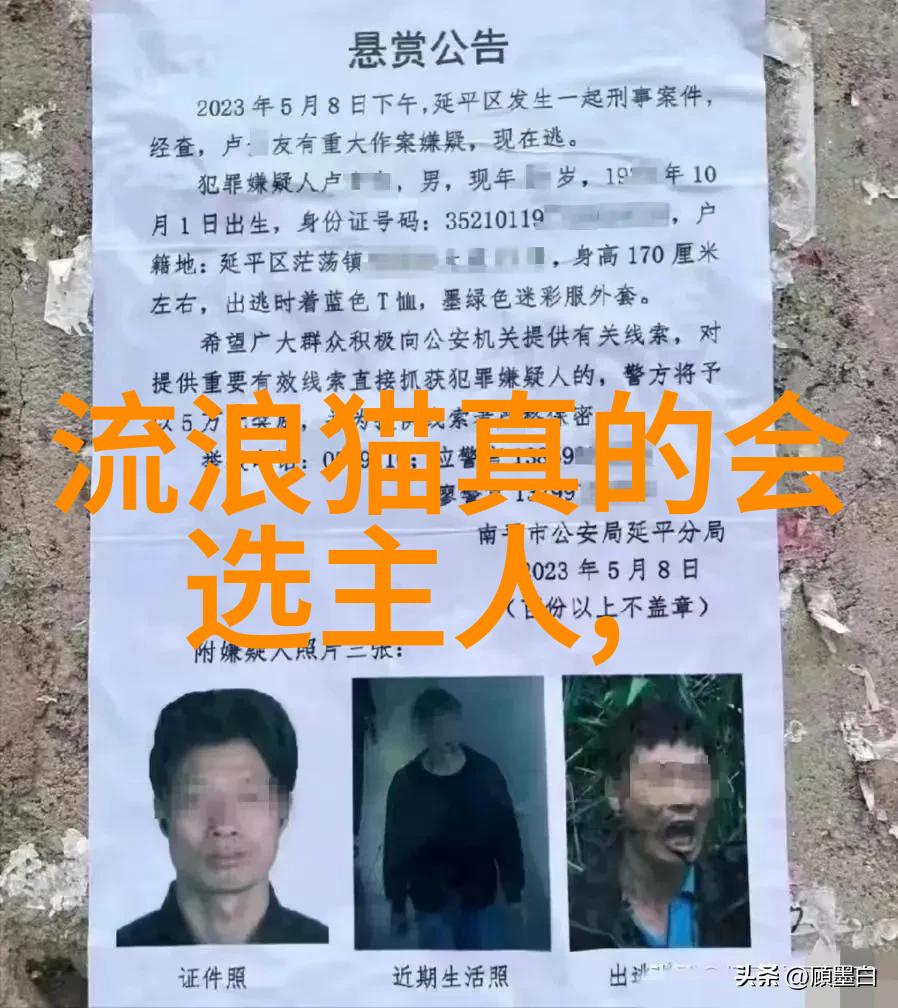 悬赏公告
2023年5月8日下午，延平区发生一起刑事案件，
经查，卢 友有重大作案嫌疑，现在逃。
犯罪嫌疑人卢 ，男，现年 岁，19 年10
月1日出生，身份证号码：35210119 ，户
籍地：延平区茫荡镇 ，身高170厘米
左右，出逃时着蓝色T恤，墨绿色迷彩服外套。
希望广大群众积极向公安机关提供有关线索，对
提供重要有效线索直接抓获犯罪嫌疑人的，警方将予
5万 线索 保密
流浪猫真的会
选主人，
南 市公安局延平分局
2023年5月8日
份以上不盖章）
附嫌疑人照片三张：
证件照
近期生活照
出逃
头条 @顾墨白